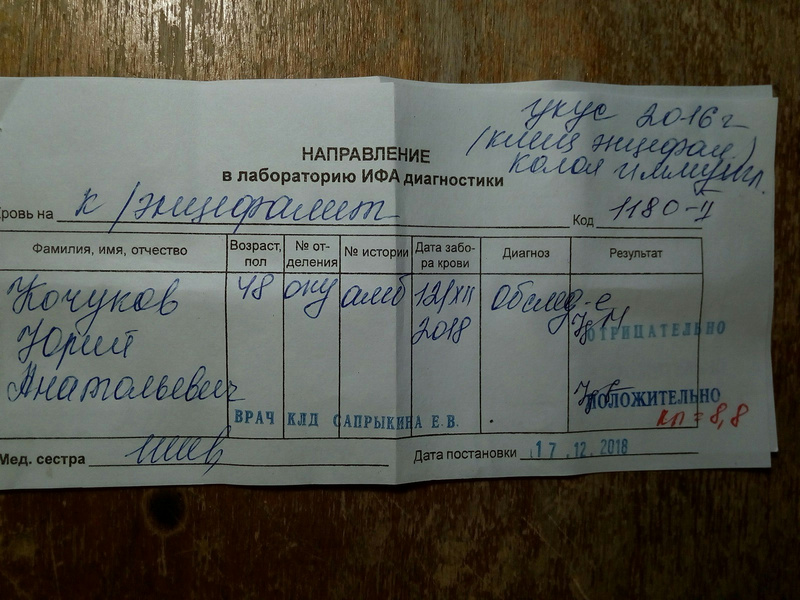 укус 2016 г
(клещ энцефал.)
колол иммуногл.
НАПРАВЛЕНИЕ
в лабораторию ИФА диагностики
Кровь на к/энцефалит Код 1180-II
Фамилия, имя, отчество Возраст, пол № от-деления № истории Дата забо-ра крови Диагноз Результат
Кочуков 48 амб 12/XII Обслед-е IgM
Юрий 2018 ОТРИЦАТЕЛЬНО
Анатольевич IgG ПОЛОЖИТЕЛЬНО
ВРАЧ КЛД САПРЫКИНА Е.В. КП = 8,8
Мед. сестра Дата постановки 17.12.2018